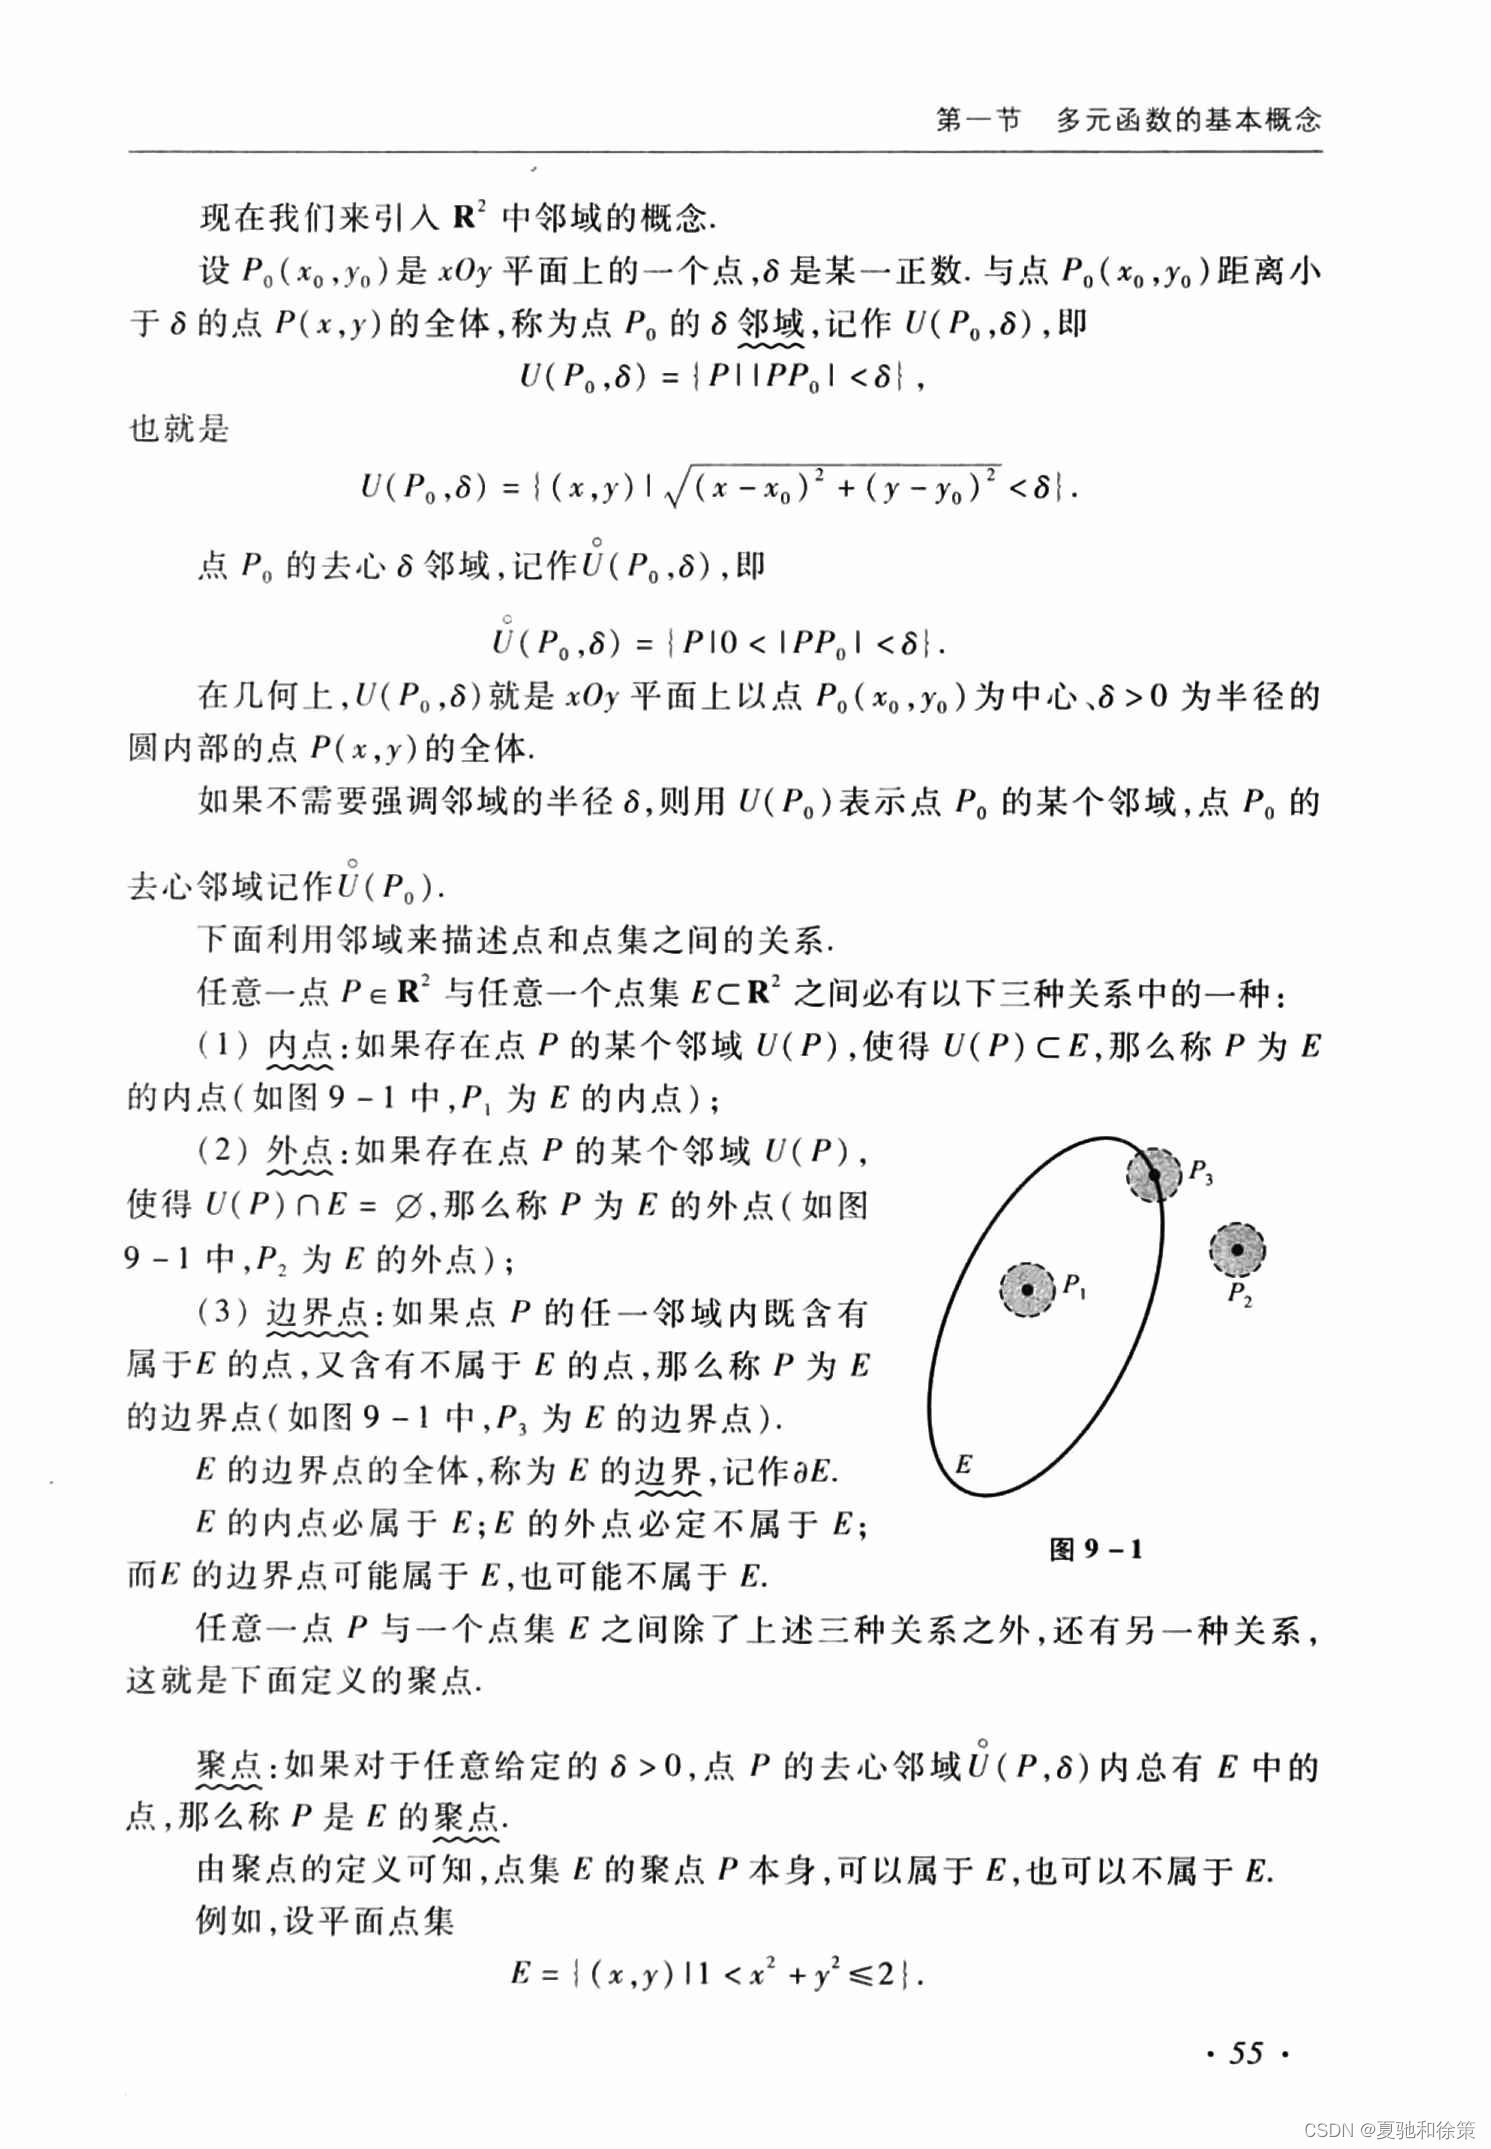 第一节　多元函数的基本概念
现在我们来引入 R² 中邻域的概念.
设 P₀(x₀,y₀)是 xOy 平面上的一个点,δ 是某一正数. 与点 P₀(x₀,y₀)距离小
于 δ 的点 P(x,y)的全体,称为点 P₀ 的 δ 邻域,记作 U(P₀,δ),即
U(P₀,δ) = {P||PP₀| <δ},
也就是
U(P₀,δ) = {(x,y)|√((x-x₀)²+(y-y₀)²) <δ}.
点 P₀ 的去心 δ 邻域,记作Ů(P₀,δ),即
Ů(P₀,δ) = {P|0 < |PP₀| <δ}.
在几何上,U(P₀,δ)就是 xOy 平面上以点 P₀(x₀,y₀)为中心、δ>0 为半径的
圆内部的点 P(x,y)的全体.
如果不需要强调邻域的半径 δ,则用 U(P₀)表示点 P₀ 的某个邻域,点 P₀ 的
去心邻域记作Ů(P₀).
下面利用邻域来描述点和点集之间的关系.
任意一点 P∈R² 与任意一个点集 E⊂R² 之间必有以下三种关系中的一种:
(1) 内点:如果存在点 P 的某个邻域 U(P),使得 U(P)⊂E,那么称 P 为 E
的内点(如图 9-1 中,P₁ 为 E 的内点);
(2) 外点:如果存在点 P 的某个邻域 U(P),
使得 U(P)∩E = ∅,那么称 P 为 E 的外点(如图
9-1 中,P₂ 为 E 的外点);
(3) 边界点:如果点 P 的任一邻域内既含有
属于E 的点,又含有不属于 E 的点,那么称 P 为 E
的边界点(如图 9-1 中,P₃ 为 E 的边界点).
E 的边界点的全体,称为 E 的边界,记作∂E.
E 的内点必属于 E;E 的外点必定不属于 E;
而E 的边界点可能属于 E,也可能不属于 E.
P₃
P₁
P₂
E
图 9-1
任意一点 P 与一个点集 E 之间除了上述三种关系之外,还有另一种关系,
这就是下面定义的聚点.
聚点:如果对于任意给定的 δ>0,点 P 的去心邻域Ů(P,δ)内总有 E 中的
点,那么称 P 是 E 的聚点.
由聚点的定义可知,点集 E 的聚点 P 本身,可以属于 E,也可以不属于 E.
例如,设平面点集
E = {(x,y)|1 <x² +y²≤2}.
· 55 ·
CSDN @夏驰和徐策